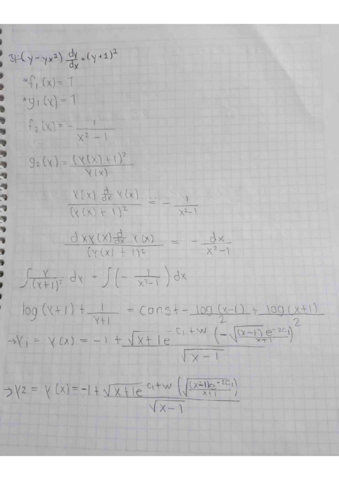 31.- (y - yx²) dy/dx = (y+1)²
*f₁(x) = 1
*g₁(y) - 1
f₂(x) = - 1/(x² - 1)
g₂(y) = (y(x)+1)²/y(x)
(y(x) d/dx y(x))/(y(x) + 1)² = - 1/(x²-1)
(dx y(x) d/dx y(x))/(y(x) + 1)² = - dx/(x²-1)
∫ y/(y+1)² dy = ∫(- 1/(x²-1)) dx
log(y+1) + 1/(y+1) = const - log(x-1)/2 + log(x+1)/2
→ y₁ = y(x) = -1 + √(x+1) e^(-c₁+w (-√((x-1)e^(-2c₁)/(x+1))))/√(x-1)
→ y2 = y(x) = -1 + √(x+1) e^(c₁+w (√((x-1)e^(-2c₁)/(x+1))))/√(x-1)